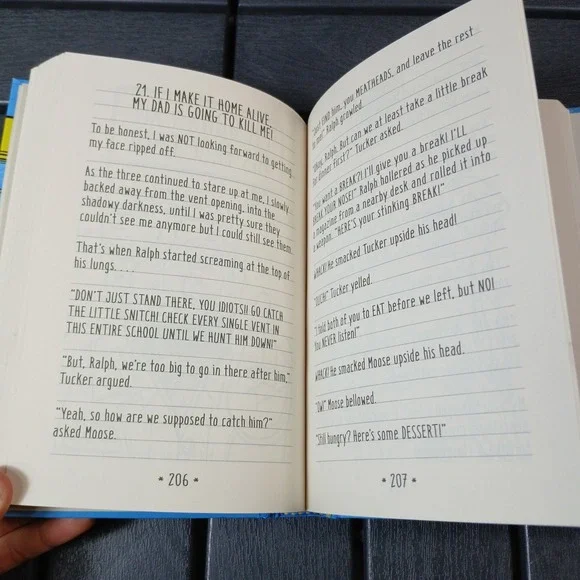 21. IF I MAKE IT HOME ALIVE,
MY DAD IS GOING TO KILL ME!
To be honest, I was NOT looking forward to getting
my face ripped off.
As the three continued to stare up at me, I slowly
backed away from the vent opening, into the
shadowy darkness, until I was pretty sure they
couldn't see me anymore but I could still see them.
That's when Ralph started screaming at the top of
his lungs. . . .
"DON'T JUST STAND THERE, YOU IDIOTS!! GO CATCH
THE LITTLE SNITCH! CHECK EVERY SINGLE VENT IN
THIS ENTIRE SCHOOL UNTIL WE HUNT HIM DOWN!"
"But, Ralph, we're too big to go in there after him,"
Tucker argued.
"Yeah, so how are we supposed to catch him?"
asked Moose.
* 206 *
"Just FIND him, you MEATHEADS, and leave the rest
to me!" Ralph growled.
"Okay, Ralph. But can we at least take a little break
for dinner first?" Tucker asked.
"You want a BREAK?! I'll give you a break! I'LL
BREAK YOUR NOSE!" Ralph hollered as he picked up
a magazine from a nearby desk and rolled it into
a weapon. "HERE'S your stinking BREAK!"
WHACK! He smacked Tucker upside his head!
"OUCH!" Tucker yelled.
"I told both of you to EAT before we left, but NO!
You NEVER listen!"
WHACK! He smacked Moose upside his head.
"OW!" Moose bellowed.
"Still hungry? Here's some DESSERT!"
* 207 *